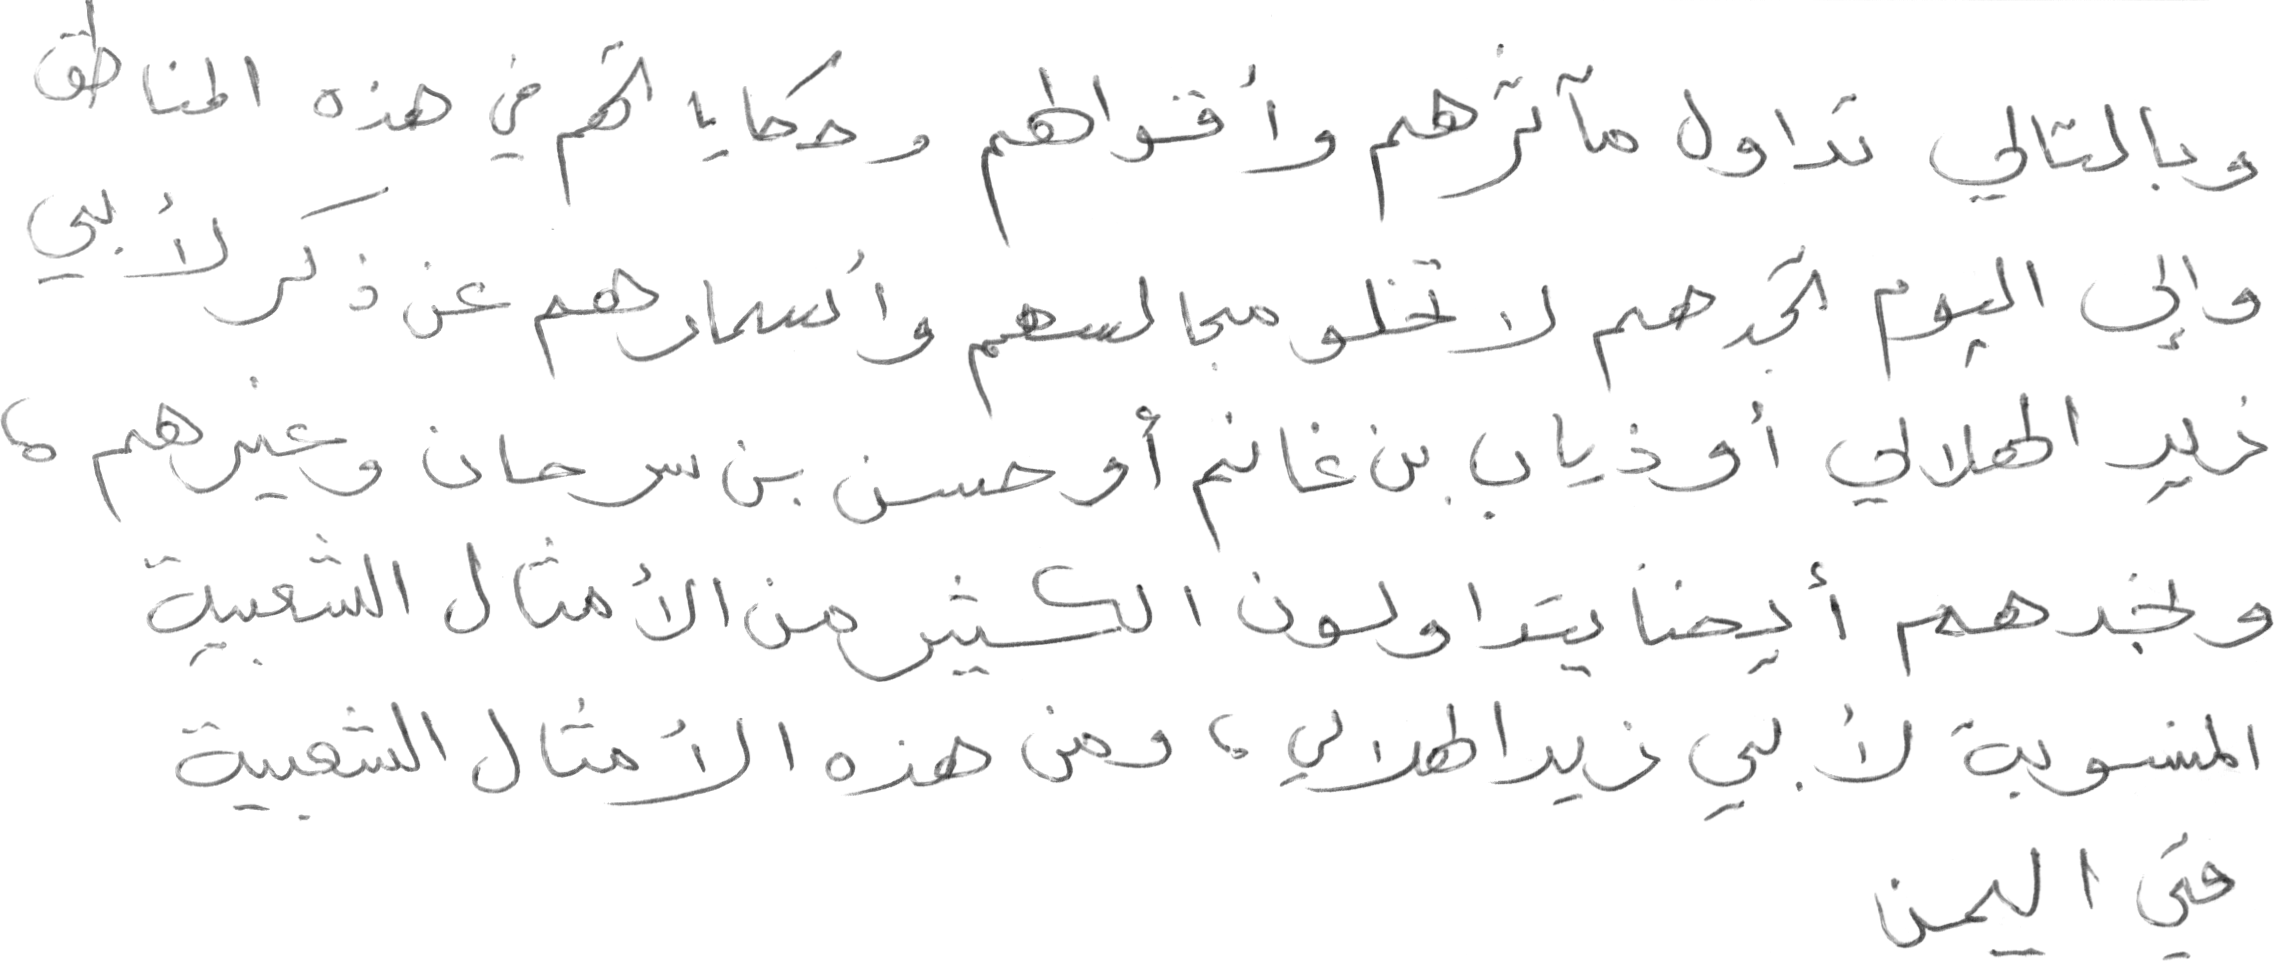 وبالتالي تداول مآثرهم وأقوالهم وحكاياتهم في هذه المناطق
وإلى اليوم تجدهم لا تخلو مجالسهم وأسمارهم عن ذكر لأبي
زيد الهلالي أو ذياب بن غانم أو حسن بن سرحان وغيرهم،
ونجدهم أيضا يتداولون الكثير من الأمثال الشعبية
المنسوبة لأبي زيد الهلالي، ومن هذه الأمثال الشعبية
في اليمن